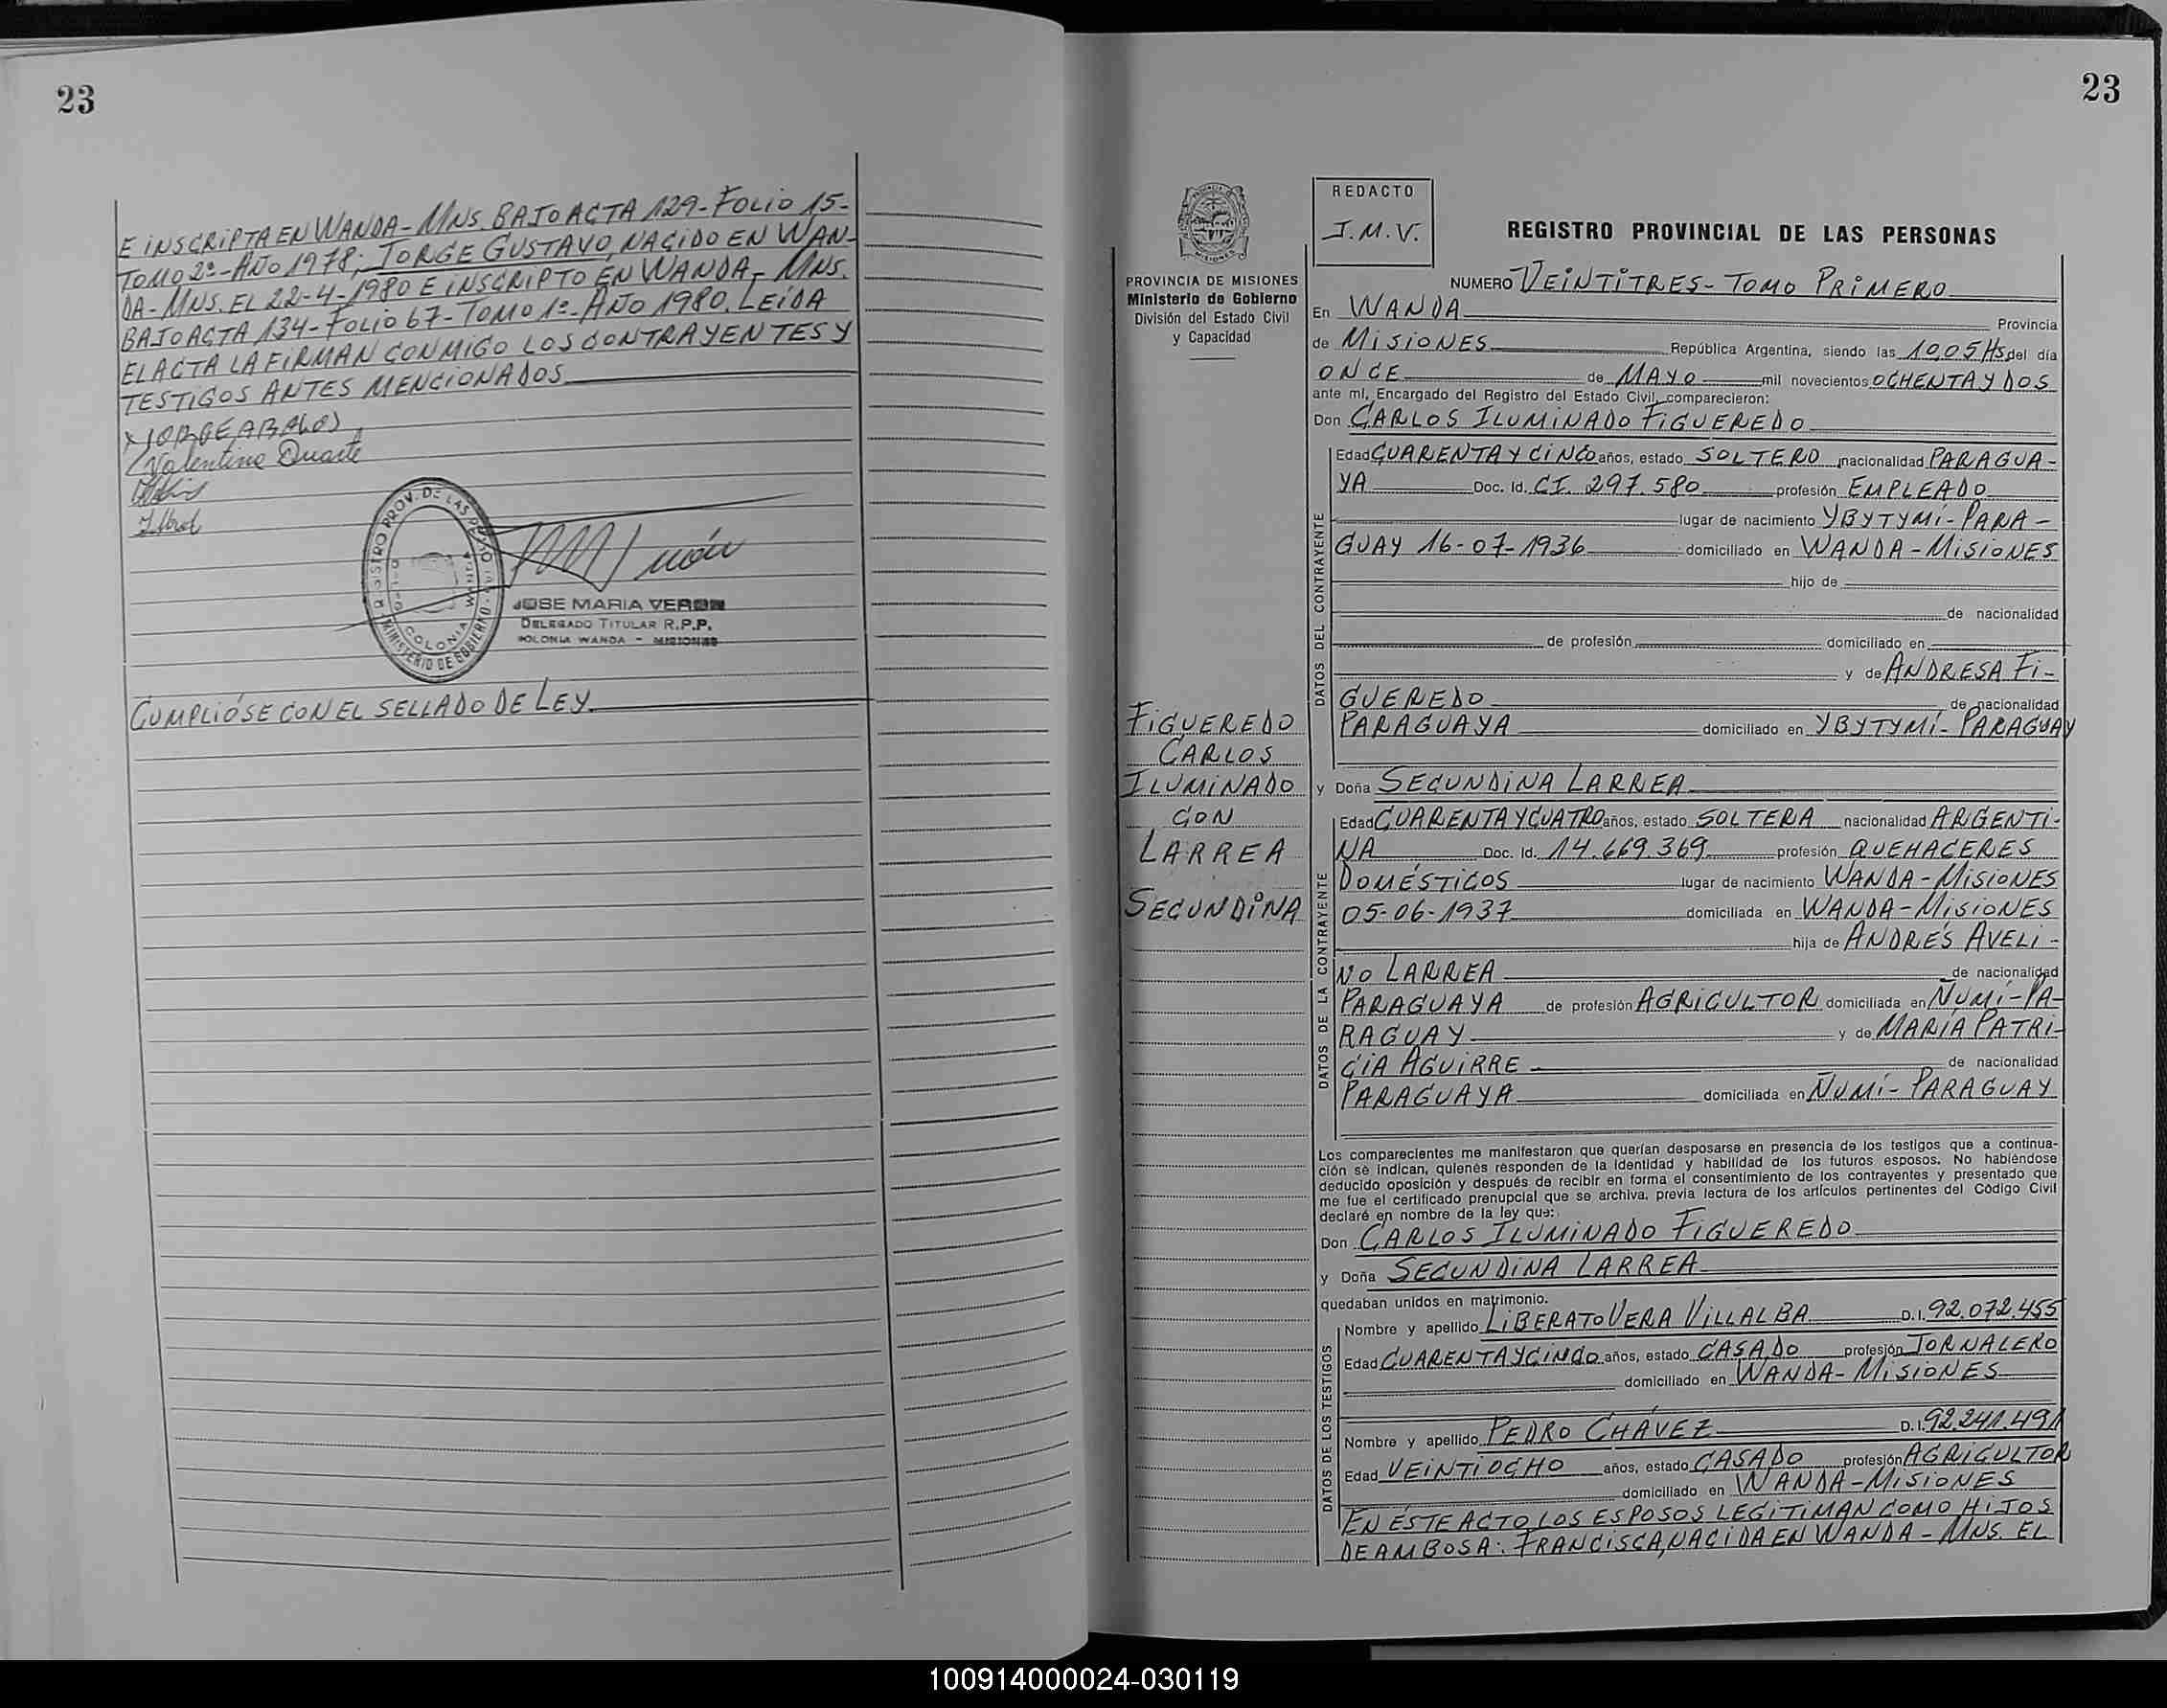 23
E INSCRIPTA EN WANDA - MNS. BAJO ACTA 129 - FOLIO 15 -
TOMO 2º - AÑO 1978; JORGE GUSTAVO, NACIDO EN WAN-
DA - MNS. EL 22-4-1980 E INSCRIPTO EN WANDA - MNS.
BAJO ACTA 134 - FOLIO 67 - TOMO 1º - AÑO 1980. LEÍDA
EL ACTA LA FIRMAN CONMIGO LOS CONTRAYENTES Y
TESTIGOS ANTES MENCIONADOS
JORGE ABALOS
Valentina Duarte
JOSE MARIA VERON
DELEGADO TITULAR R.P.P.
COLONIA WANDA - MISIONES
MINISTERIO DE GOBIERNO
COLONIA WANDA
CUMPLIÓSE CON EL SELLADO DE LEY.
23
PROVINCIA DE MISIONES
Ministerio de Gobierno
División del Estado Civil
y Capacidad
FIGUEREDO
CARLOS
ILUMINADO
CON
LARREA
SECUNDINA
REDACTO
J.M.V.
REGISTRO PROVINCIAL DE LAS PERSONAS
NUMERO VEINTITRES - TOMO PRIMERO
En WANDA Provincia
de MISIONES República Argentina, siendo las 10,05 Hs del día
ONCE de MAYO mil novecientos OCHENTA Y DOS
ante mí, Encargado del Registro del Estado Civil, comparecieron:
Don CARLOS ILUMINADO FIGUEREDO
DATOS DEL CONTRAYENTE
Edad CUARENTA Y CINCO años, estado SOLTERO nacionalidad PARAGUA-
YA Doc. Id. CI. 297.580 profesión EMPLEADO
lugar de nacimiento YBYTYMÍ - PARA-
GUAY 16-07-1936 domiciliado en WANDA - MISIONES
hijo de
de nacionalidad
de profesión domiciliado en
y de ANDRESA FI-
GUEREDO de nacionalidad
PARAGUAYA domiciliado en YBYTYMÍ - PARAGUAY
y Doña SECUNDINA LARREA
DATOS DE LA CONTRAYENTE
Edad CUARENTA Y CUATRO años, estado SOLTERA nacionalidad ARGENTI-
NA Doc. Id. 14.669.369 profesión QUEHACERES
DOMÉSTICOS lugar de nacimiento WANDA - MISIONES
05-06-1937 domiciliada en WANDA - MISIONES
hija de ANDRÉS AVELI-
NO LARREA de nacionalidad
PARAGUAYA de profesión AGRICULTOR domiciliada en ÑUMÍ - PA-
RAGUAY y de MARÍA PATRI-
CIA AGUIRRE de nacionalidad
PARAGUAYA domiciliada en ÑUMÍ - PARAGUAY
Los comparecientes me manifestaron que querían desposarse en presencia de los testigos que a continua-
ción se indican, quienes responden de la identidad y habilidad de los futuros esposos. No habiéndose
deducido oposición y después de recibir en forma el consentimiento de los contrayentes y presentado que
me fue el certificado prenupcial que se archiva, previa lectura de los artículos pertinentes del Código Civil
declaré en nombre de la ley que:
Don CARLOS ILUMINADO FIGUEREDO
y Doña SECUNDINA LARREA
quedaban unidos en matrimonio.
DATOS DE LOS TESTIGOS
Nombre y apellido LIBERATO VERA VILLALBA D.I. 92.072.455
Edad CUARENTA Y CINCO años, estado CASADO profesión JORNALERO
domiciliado en WANDA - MISIONES
Nombre y apellido PEDRO CHÁVEZ D.I. 92.241.491
Edad VEINTIOCHO años, estado CASADO profesión AGRICULTOR
domiciliado en WANDA - MISIONES
EN ESTE ACTO LOS ESPOSOS LEGITIMAN COMO HIJOS
DE AMBOS A: FRANCISCA, NACIDA EN WANDA - MNS. EL
100914000024-030119